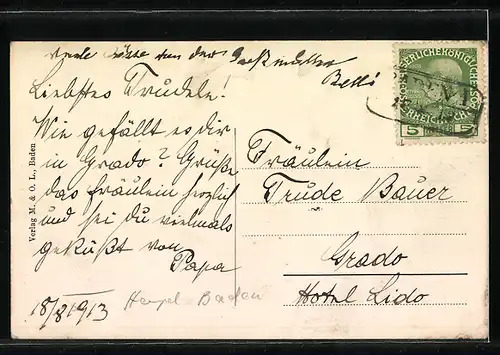 viele Küsse von der Großmutter
Betti
Liebstes Trudele!
Wie gefällt es dir
in Grado? Grüße
das Fräulein herzlich
und sei du vielmals
geküßt von
Papa
18/8 1913
Baden
Verlag M. & O. L., Baden
Fräulein
Trude Bauer
Grado
Hotel Lido
5 5